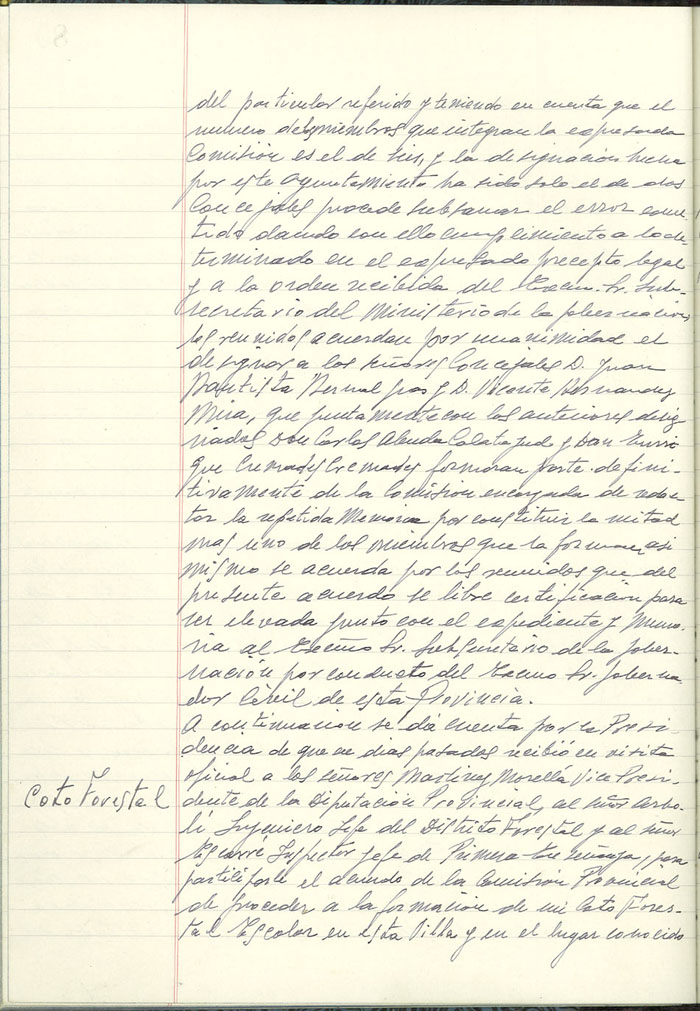 del particular referido y teniendo en cuenta que el
numero de los miembros que integran la expresada
Comisión es el de seis, y la designación hecha
por este Ayuntamiento ha sido solo el de dos
Concejales procede subsanar el error come-
tido dando con ello cumplimiento a lo de-
terminado en el expresado precepto legal
y a la orden recibida del Excmo. Sr. Sub-
secretario del Ministerio de la Gobernación,
los reunidos acuerdan por unanimidad el
designar a los señores Concejales D. Juan
Bautista Bernal y D. Vicente Hernandez
Mira, que juntamente con los anteriores desig-
nados Don Carlos Calatayud y Don Enri-
que Cremades Cremades formaran parte defini-
tivamente de la Comisión encargada de redac-
tar la repetida Memoria por constituir la mitad
mas uno de los miembros que la forman, asi
mismo se acuerda por los reunidos que del
presente acuerdo se libre certificación para
ser elevada junto con el expediente y Memo-
ria al Excmo Sr. Subsecretario de la Gober-
nación por conducto del Excmo Sr. Goberna-
dor Civil de esta Provincia.
A continuacion se dá cuenta por la Presi-
dencia de que en dias pasados recibió en visita
oficial a los señores Martinez Morellá Vice Presi-
Coto Forestal
dente de la Diputación Provincial, al señor
Ingeniero Jefe del Distrito Forestal y al señor
Inspector Jefe de Primera Enseñanza, para
participarle el acuerdo de la Comisión Provincial
de proceder a la formación de un Coto Fores-
tal Escolar en esta Villa y en el lugar conocido